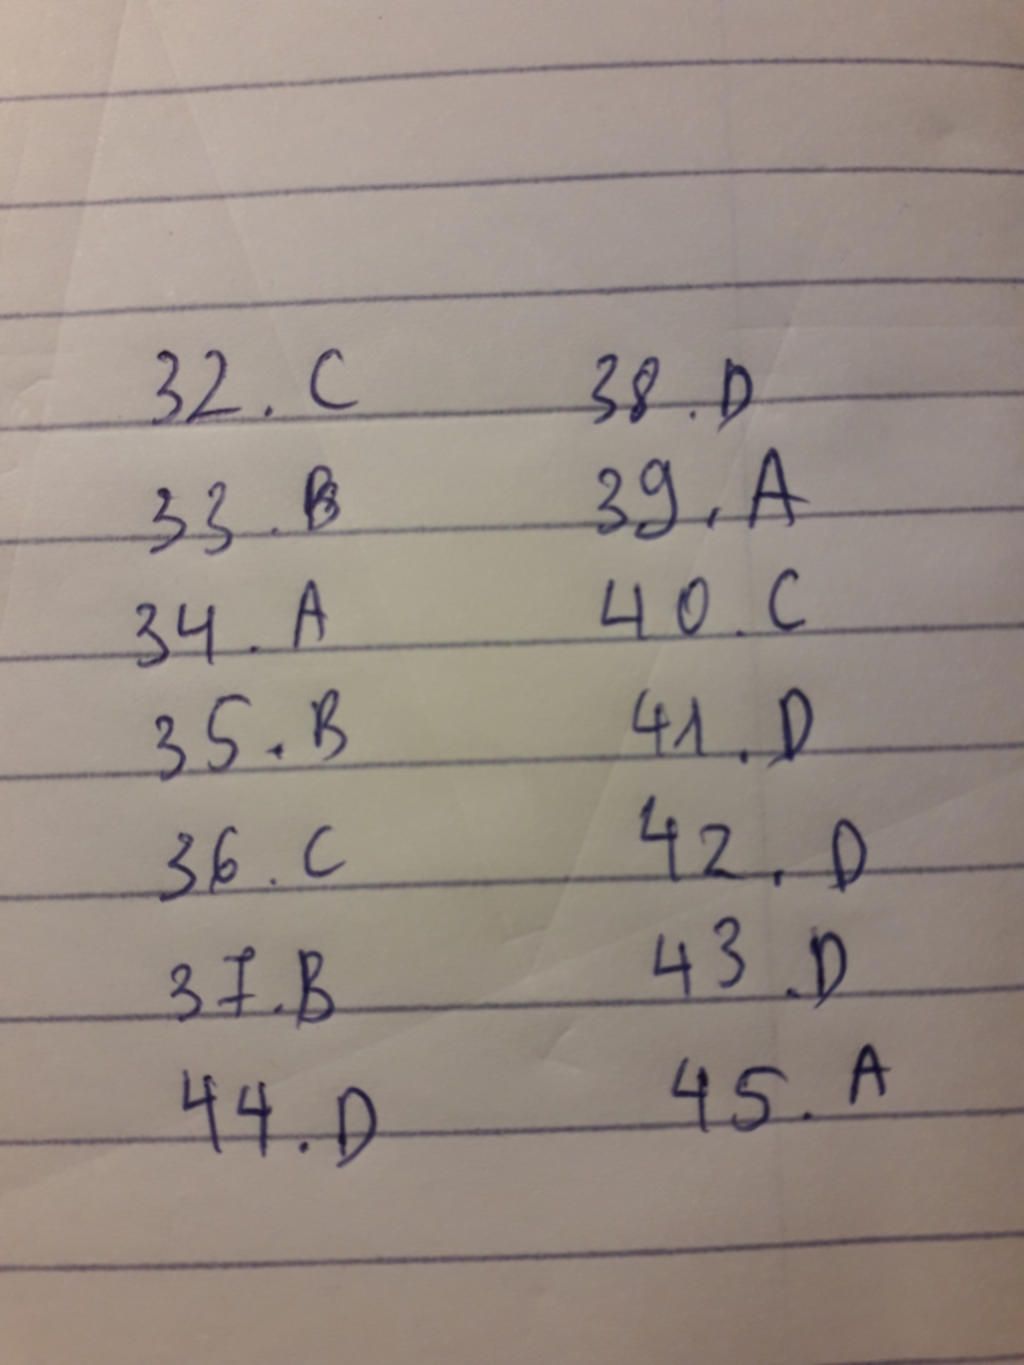 32. C 38. D
33. B 39. A
34. A 40. C
35. B 41. D
36. C 42. D
37. B 43. D
44. D 45. A